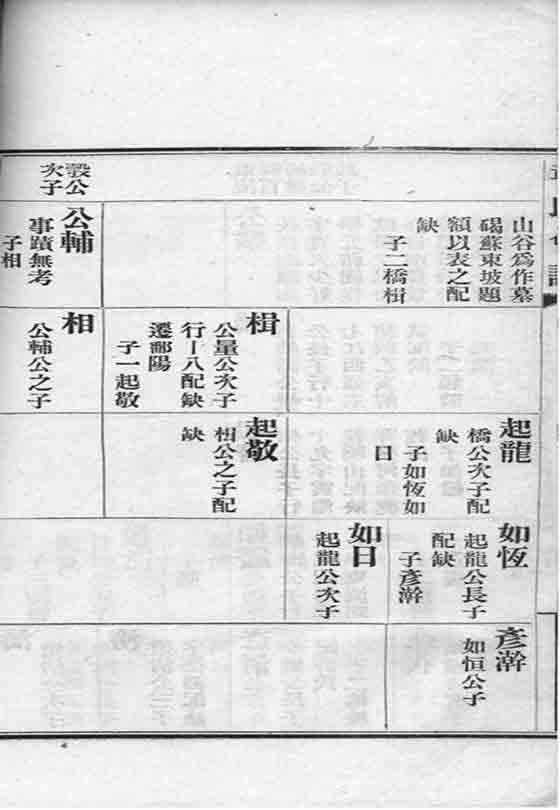 公
次子
山谷爲作墓
碣蘇東坡題
額以表之配
缺
子二橋楫
公輔
事蹟無考
子相
楫
公量公次子
行十八配缺
遷鄱陽
子一起敬
相
公輔公之子
起龍
橋公次子配
缺
子如恆如
日
起敬
相公之子配
缺
如恆
起龍公長子
配缺
子彥澣
如日
起龍公次子
彥澣
如恒公子